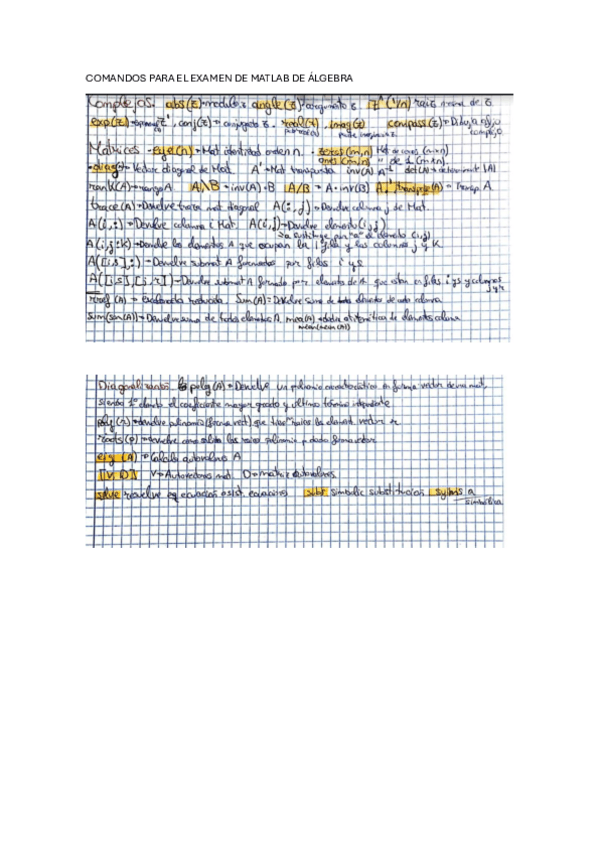 COMANDOS PARA EL EXAMEN DE MATLAB DE ÁLGEBRA
Complejos. abs(z) modulo z angle(z) argumento z z^(1/n) raiz de z
exp(z) , conj(z) = conjugado z . real(z), imag(z) compass(z) = Dibujo
complejo
Matrices - eye(n) = Mat identidad orden n. - zeros(m,n) Mat de ceros (m×n)
ones(m,n) " de 1 (m×n)
diag = Vector diagonal de Mat. A' = Mat transpuesta inv(A) A⁻¹ det(A) = |A|
rank(A) = rango A A\B = inv(A)·B A/B = A·inv(B) A.' transpose(A) = Transp. A
trace(A) = Devuelve traza mat diagonal A(:,j) = Devolver columna j de Mat.
A(i,:) = Devolver columna i Mat. A(i,j) = Devolver elemento (i,j)
el elemento (i,j)
A(i,j:k) = Devolve los elementos A que ocupan la i fila y las columnas j y k
A([i,s],:) = Devolver submat A formados por filas i y s
A([i,s],[j,r]) = Devolver submat A formado por elementos de A que estan en filas i y s y columnas
j y r
rref(A) = escalonada reducida. Sum(A) = Devolver suma de elementos de cada columna.
Sum(sum(A)) = Devolver suma de todos elementos A. mean(A) = aritmetica de elementos columna
mean(mean(A))
Diagonalización poly(A) = Devuelve un polinomio caracteristico en forma vector de una mat,
siendo 1º elemento el coeficiente mayor grado y ultimo término independiente
poly(r) = devuelve polinomio (forma vect) que tiene raices los element vector r
roots(p) = devuelve las raices polinomio p forma vector
eig(A) = Calcula autovalores A
[V,D] V = Autovectores mat. D = matriz autovalores
solve resuelve eq ecuacion o sist. ecuaciones subs simbolic substitucion syms a
simbolica